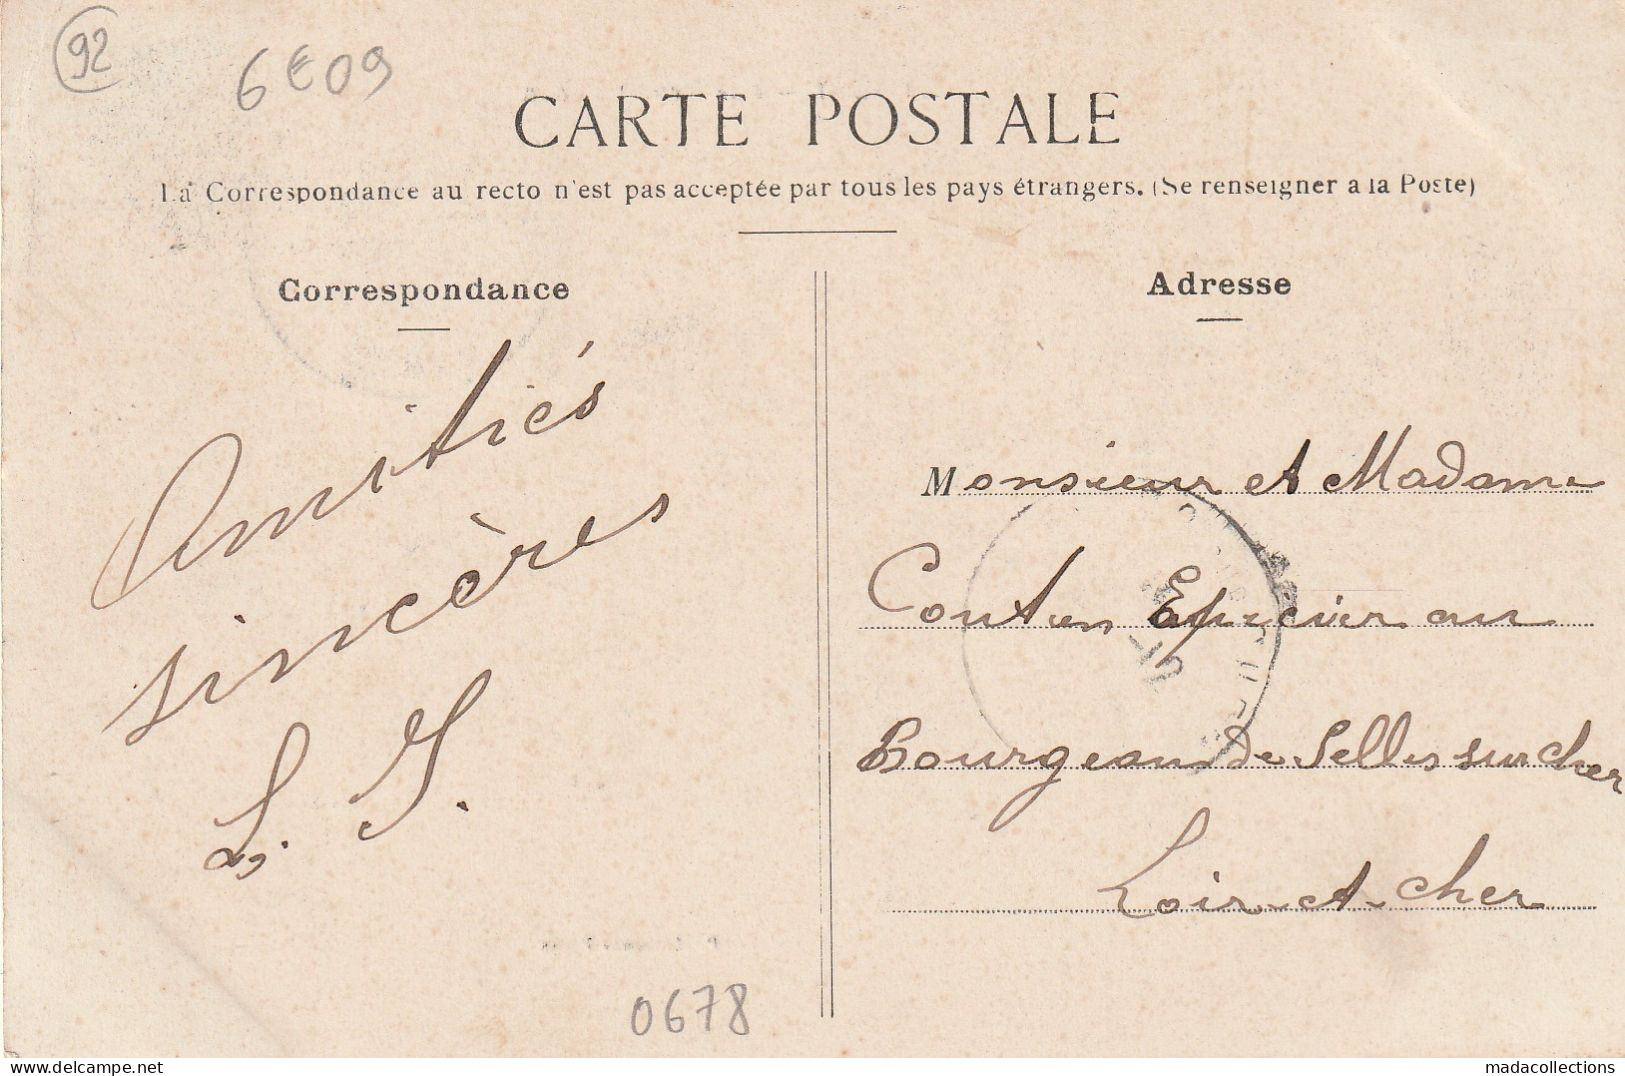 92
6€09
CARTE POSTALE
La Correspondance au recto n'est pas acceptée par tous les pays étrangers. (Se renseigner a la Poste)
Correspondance
Amitiés
sincères
L. S.
Adresse
Monsieur et Madame
Couton Epicier au
Bourgeau De Selles sur cher
Loir-et-cher
0678
delcampe.net
madacollections